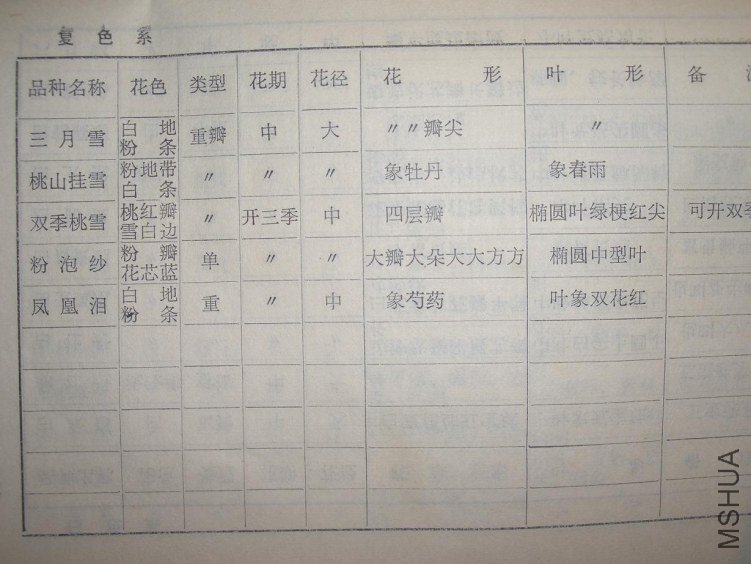 复色系
品种名称 花色 类型 花期 花径 花形 叶形 备
三月雪 白地粉条 重瓣 中 大 〃〃瓣尖 〃
桃山挂雪 粉地带白条 〃 〃 〃 象牡丹 象春雨
双季桃雪 桃红瓣雪白边 〃 开三季 中 四层瓣 椭圆叶绿梗红尖 可开双季
粉泡纱 粉瓣花芯蓝 单 〃 〃 大瓣大朵大大方方 椭圆中型叶
凤凰泪 白地粉条 重 〃 中 象芍药 叶象双花红
MSHUA